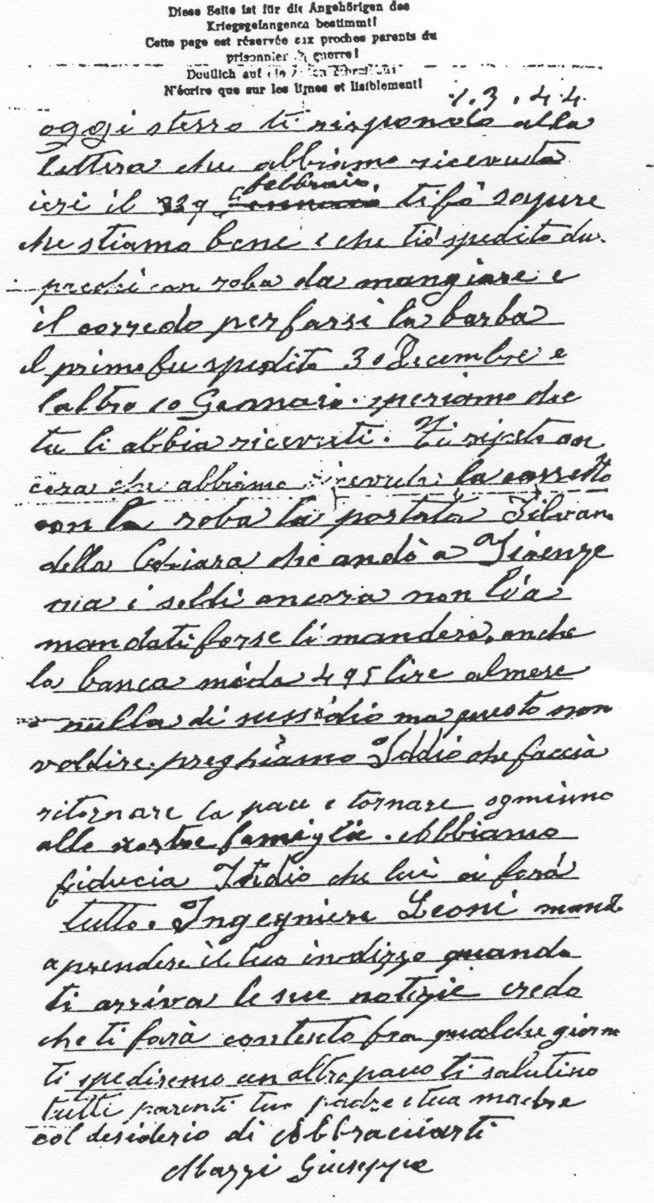 Diese Seite ist für die Angehörigen des
Kriegsgefangenen bestimmt!
Cette page est réservée aux proches parents du
prisonnier de guerre!
Deutlich auf die Zeilen schreiben!
N'écrire que sur les lignes et lisiblement!
1.3.44
oggi stesso ti rispondo alla
lettera che abbiamo ricevuta
ieri il 29 febbraio. ti fò sapere
che stiamo bene e che tiò spedito du
pacchi con roba da mangiare e
il corredo per farsi la barba
il primo fu spedito 30 Decembre e
laltro 10 Gennaio. speriamo che
tu li abbia ricevuti. Ti ripeto an
cora che abbiamo ricevuto la
con la roba la portata Silvan
della Chiara che andò a Firenze
ma i soldi ancora non lià
mandati forse li manderà, anche
la banca mada 495 lire almese
nulla di sussidio ma questo non
voldire. preghiamo Iddio che faccia
ritornare la pace e tornare ogniuno
alle nostre famiglie. Abbiamo
fiducia Iddio che lui ci farà
tutto. Ingegniere Leoni mand
aprendere il tuo indizzo quando
ti arriva le sue notizie credo
che ti farà contento fra qualche giorn
ti spediremo un altro pacco ti salutino
tutti parenti tuo padre e tua madre
col desiderio di Abbracciarti
Mazzi Giuseppe